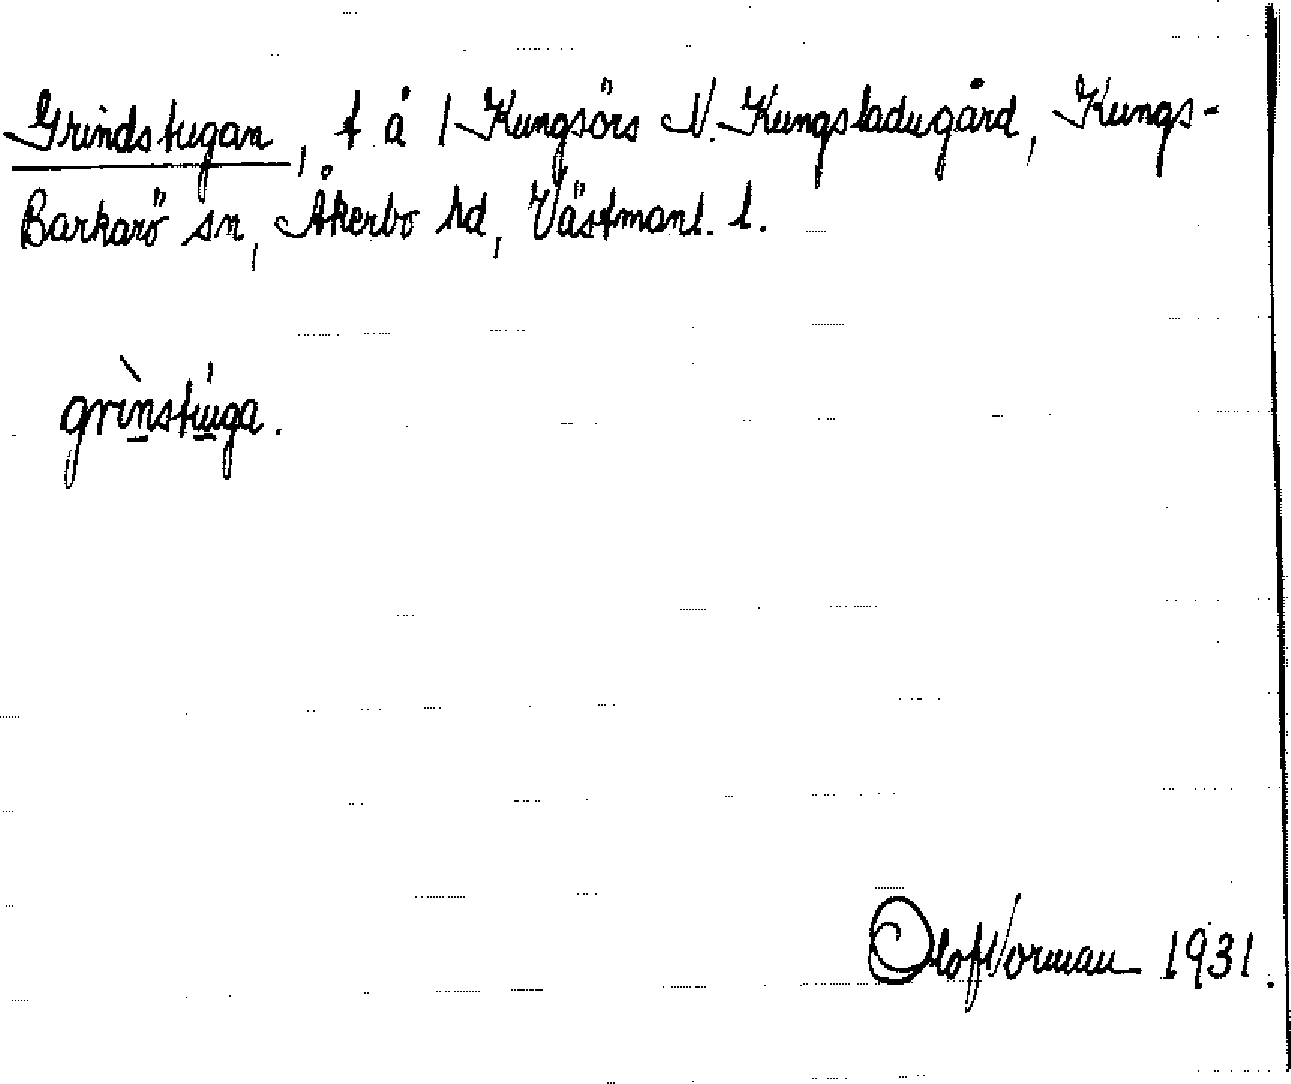 Grindstugan, t å 1 Kungsörs N. Kungsladugård, Kungs-
Barkarö sn, Åkerbo hd, Västmanl. l.
grìnstúga.
Olof Norman 1931.